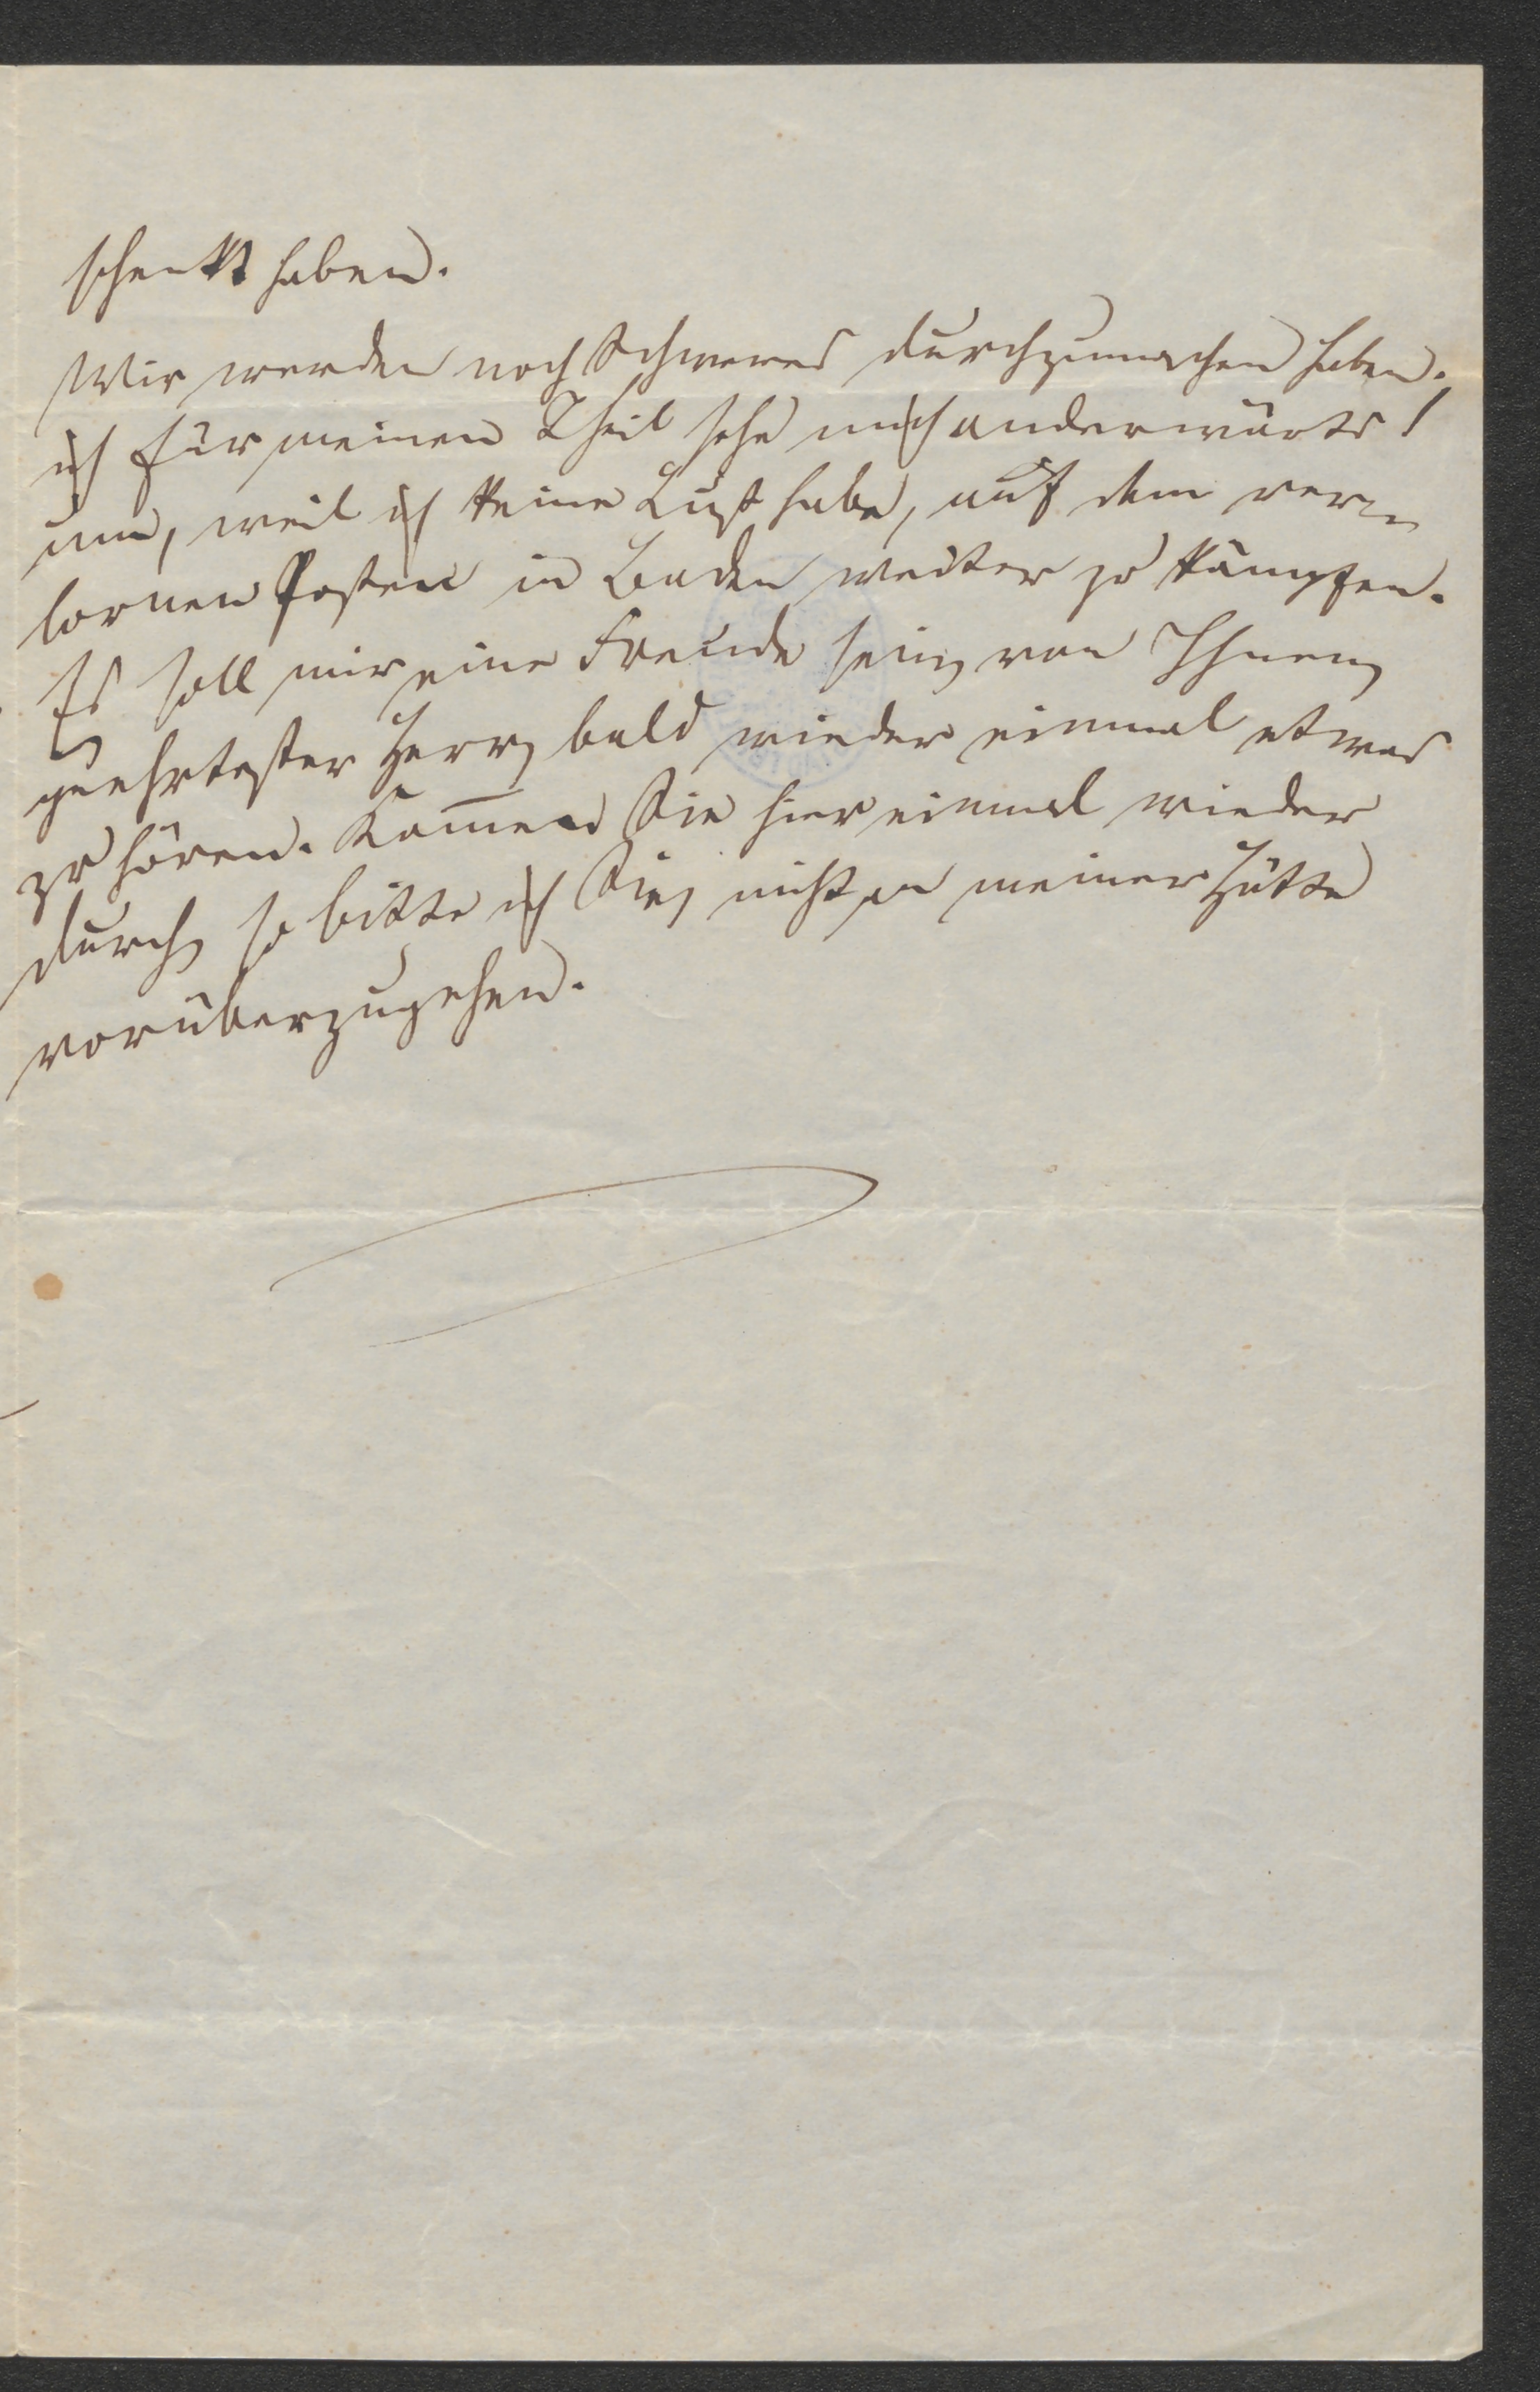 schenkt haben.
Wir werden noch Schweres durchzumachen haben.
ich für meinen Theil sehe mich anderwärts
um, weil ich keine Lust habe, auf dem ver-
lornen Posten in Baden weiter zu kämpfen.
Es soll mir eine Freude sein, von Ihnen,
geehrtester Herr, bald wieder einmal etwas
zu hören. Kom̅en Sie hier einmal wieder
durch, so bitte ich Sie, nicht an meiner Hütte
vorüberzugehen.